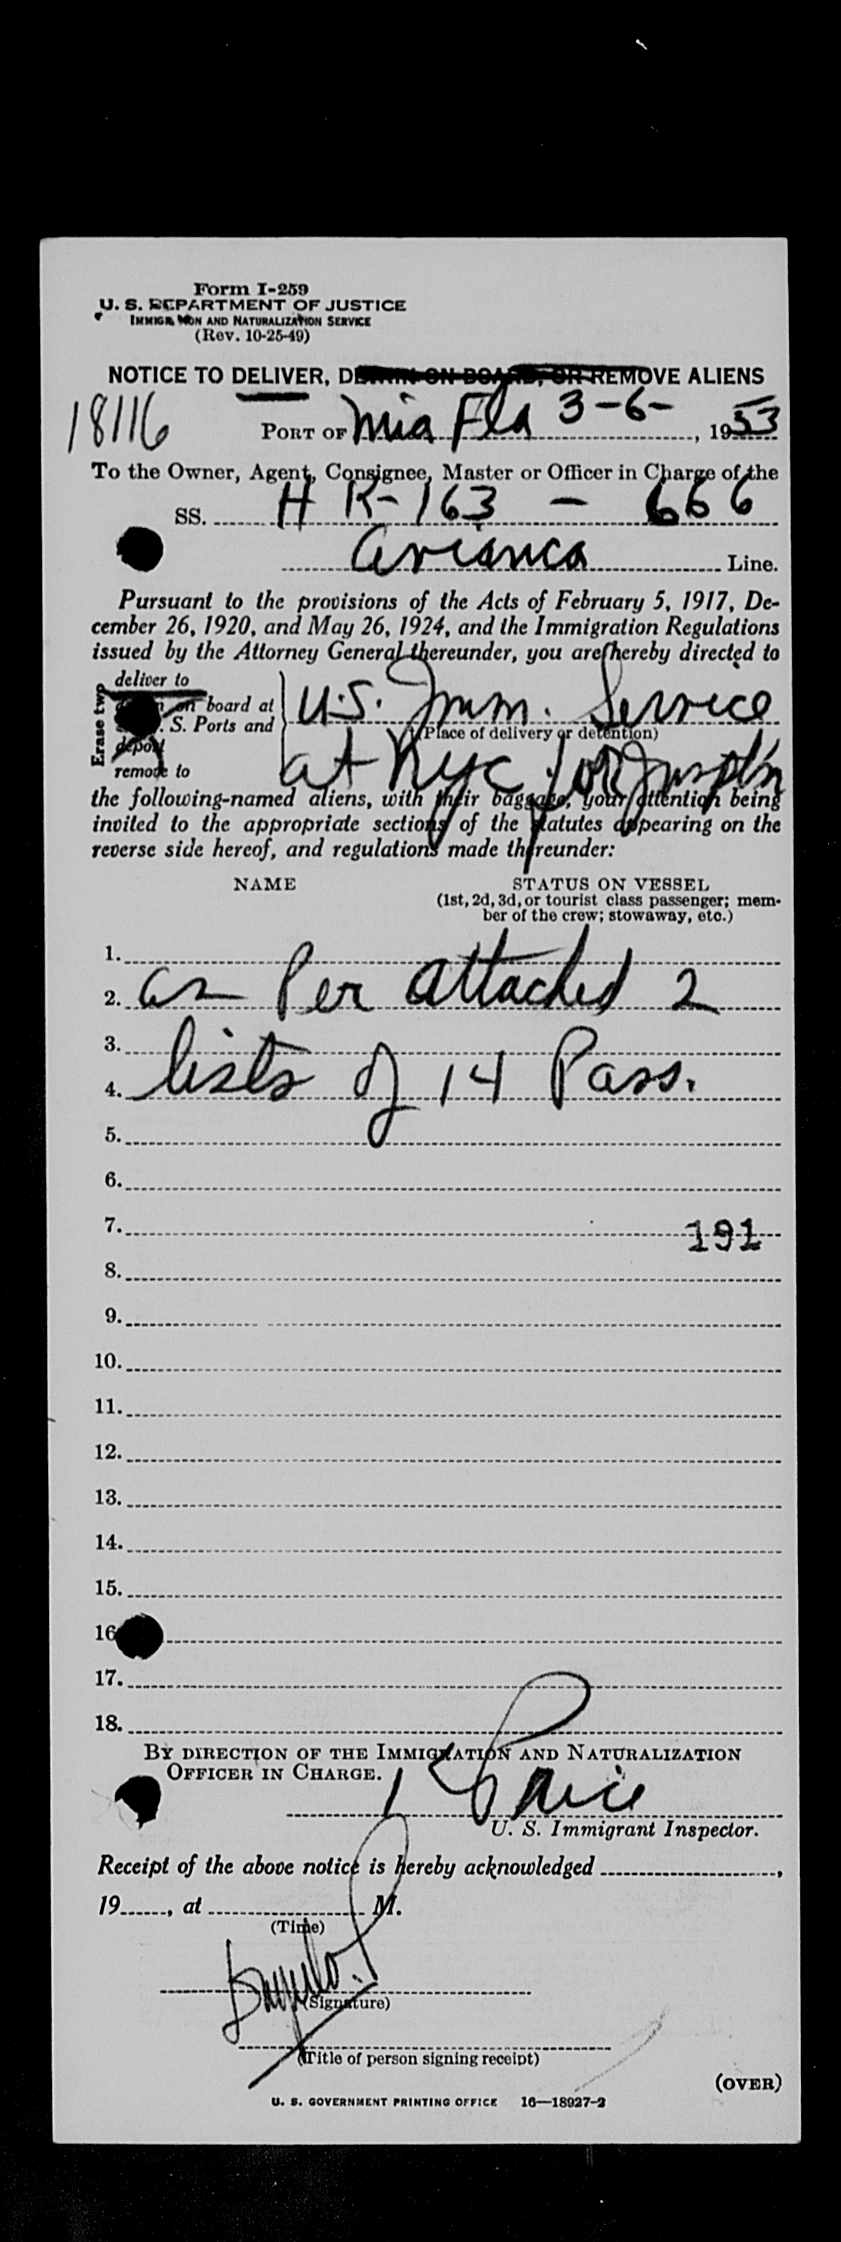 Form I-259
U. S. DEPARTMENT OF JUSTICE
IMMIGRATION AND NATURALIZATION SERVICE
(Rev. 10-25-49)
NOTICE TO DELIVER, DETAIN ON BOARD, OR REMOVE ALIENS
18116
PORT OF Mia Fla 3-6-, 1953
To the Owner, Agent, Consignee, Master or Officer in Charge of the
SS. HK-163 - 666
Avianca Line.
Pursuant to the provisions of the Acts of February 5, 1917, De-
cember 26, 1920, and May 26, 1924, and the Immigration Regulations
issued by the Attorney General thereunder, you are hereby directed to
Erase two
deliver to
on board at
S. Ports and
deport
remove to
U.S. Imm. Service
(Place of delivery or detention)
at NYC for Insp'tn
the following-named aliens, with their baggage, your attention being
invited to the appropriate sections of the statutes appearing on the
reverse side hereof, and regulations made thereunder:
NAME STATUS ON VESSEL
(1st, 2d, 3d, or tourist class passenger; mem-
ber of the crew; stowaway, etc.)
1.
2. as Per attached 2
3.
4. lists of 14 Pass.
5.
6.
7. 191
8.
9.
10.
11.
12.
13.
14.
15.
16
17.
18.
BY DIRECTION OF THE IMMIGRATION AND NATURALIZATION
OFFICER IN CHARGE.
Price
U. S. Immigrant Inspector.
Receipt of the above notice is hereby acknowledged ,
19 , at M.
(Time)
(Signature)
(Title of person signing receipt)
(OVER)
U. S. GOVERNMENT PRINTING OFFICE 16—18927-2